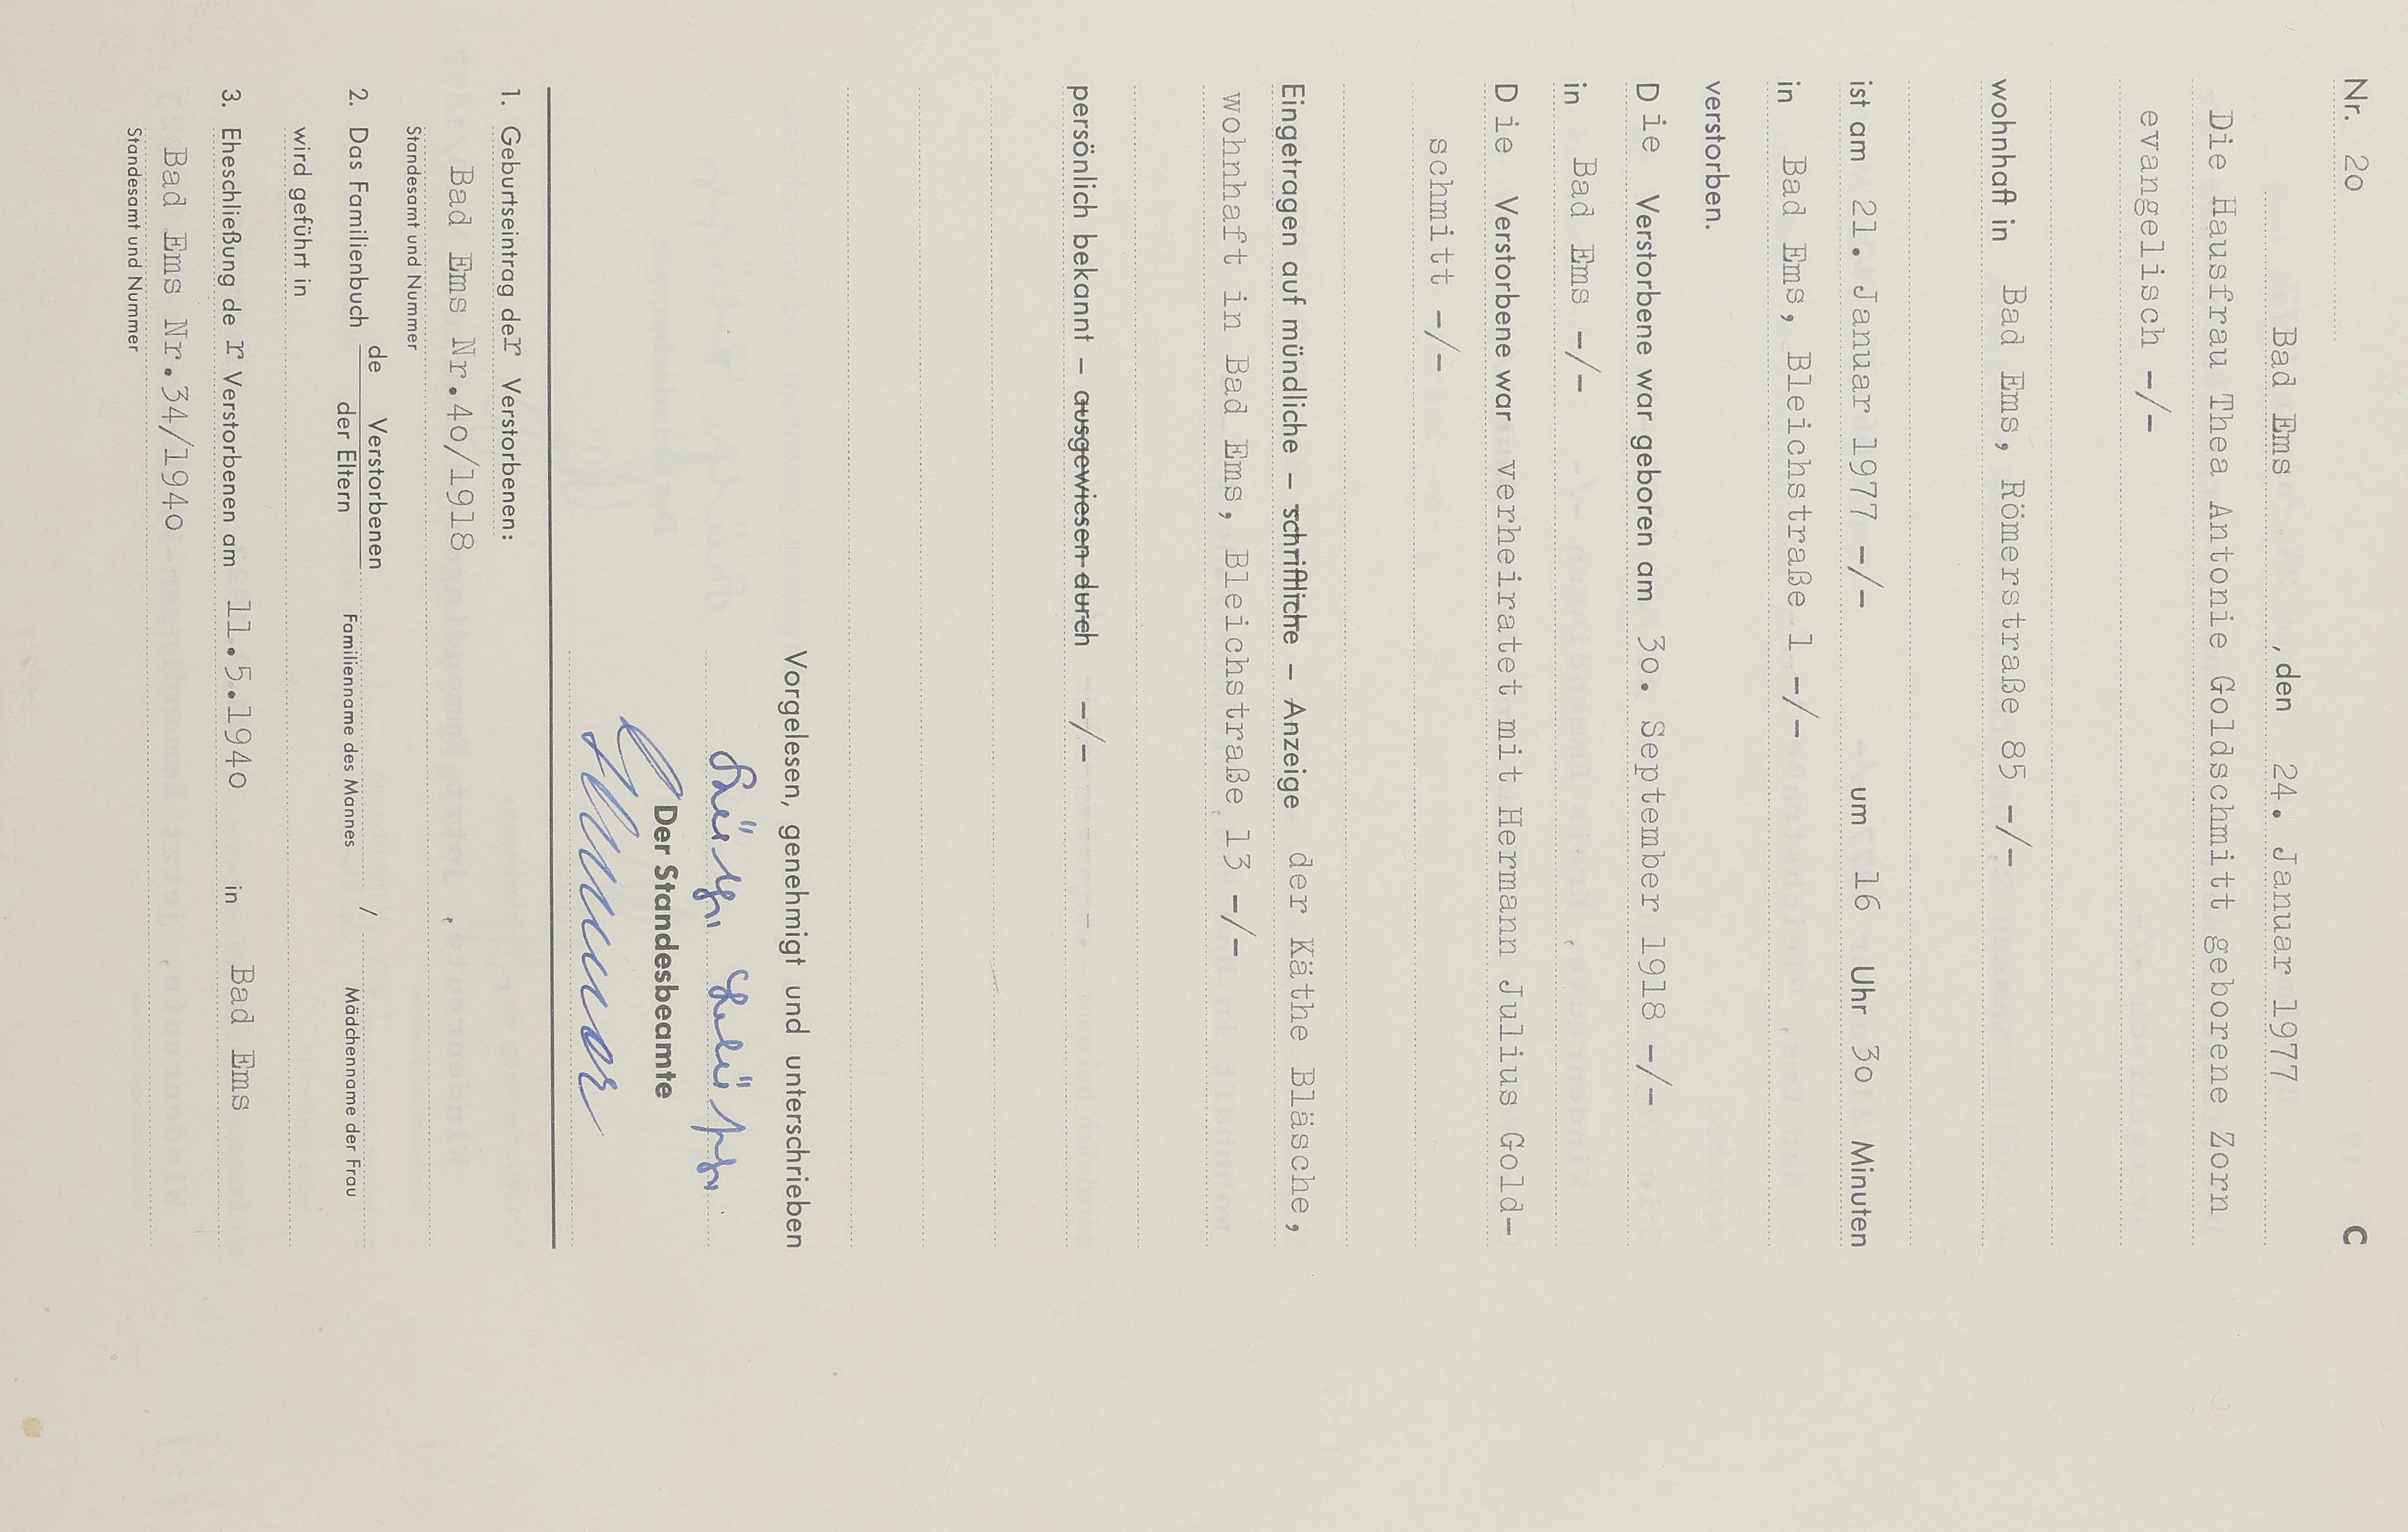 Nr. 20 C
Bad Ems , den 24. Januar 1977
Die Hausfrau Thea Antonie Goldschmitt geborene Zorn
evangelisch -/-
wohnhaft in Bad Ems, Römerstraße 85 -/-
ist am 21. Januar 1977 -/- um 16 Uhr 30 Minuten
in Bad Ems, Bleichstraße 1 -/-
verstorben.
Die Verstorbene war geboren am 30. September 1918 -/-
in Bad Ems -/-
Die Verstorbene war verheiratet mit Hermann Julius Gold-
schmitt -/-
Eingetragen auf mündliche – schriftliche – Anzeige der Käthe Bläsche,
wohnhaft in Bad Ems, Bleichstraße 13 -/-
persönlich bekannt – ausgewiesen durch -/-
Vorgelesen, genehmigt und unterschrieben
Käthe Bläsche
Der Standesbeamte
1. Geburtseintrag der Verstorbenen:
Bad Ems Nr.40/1918
Standesamt und Nummer
2. Das Familienbuch de Verstorbenen
der Eltern Familienname des Mannes / Mädchenname der Frau
wird geführt in
3. Eheschließung der Verstorbenen am 11.5.1940 in Bad Ems
Bad Ems Nr.34/1940
Standesamt und Nummer